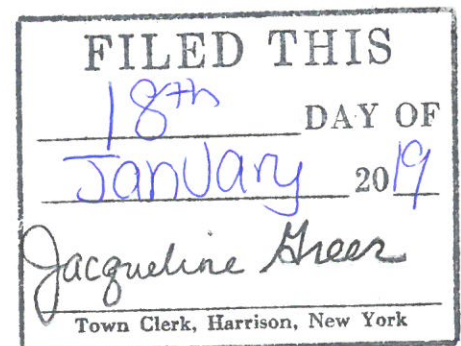 FILED THIS
18th DAY OF
January 2019
Jacqueline Greer
Town Clerk, Harrison, New York